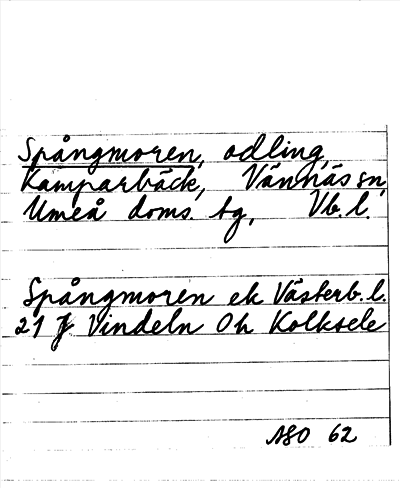 Spångmoren, odling,
Kamparbäck, Vännäs sn,
Umeå doms. tg, Vb. l.
Spångmoren ek Västerb. l.
21 J Vindeln Oh Kolksele
ASO 62